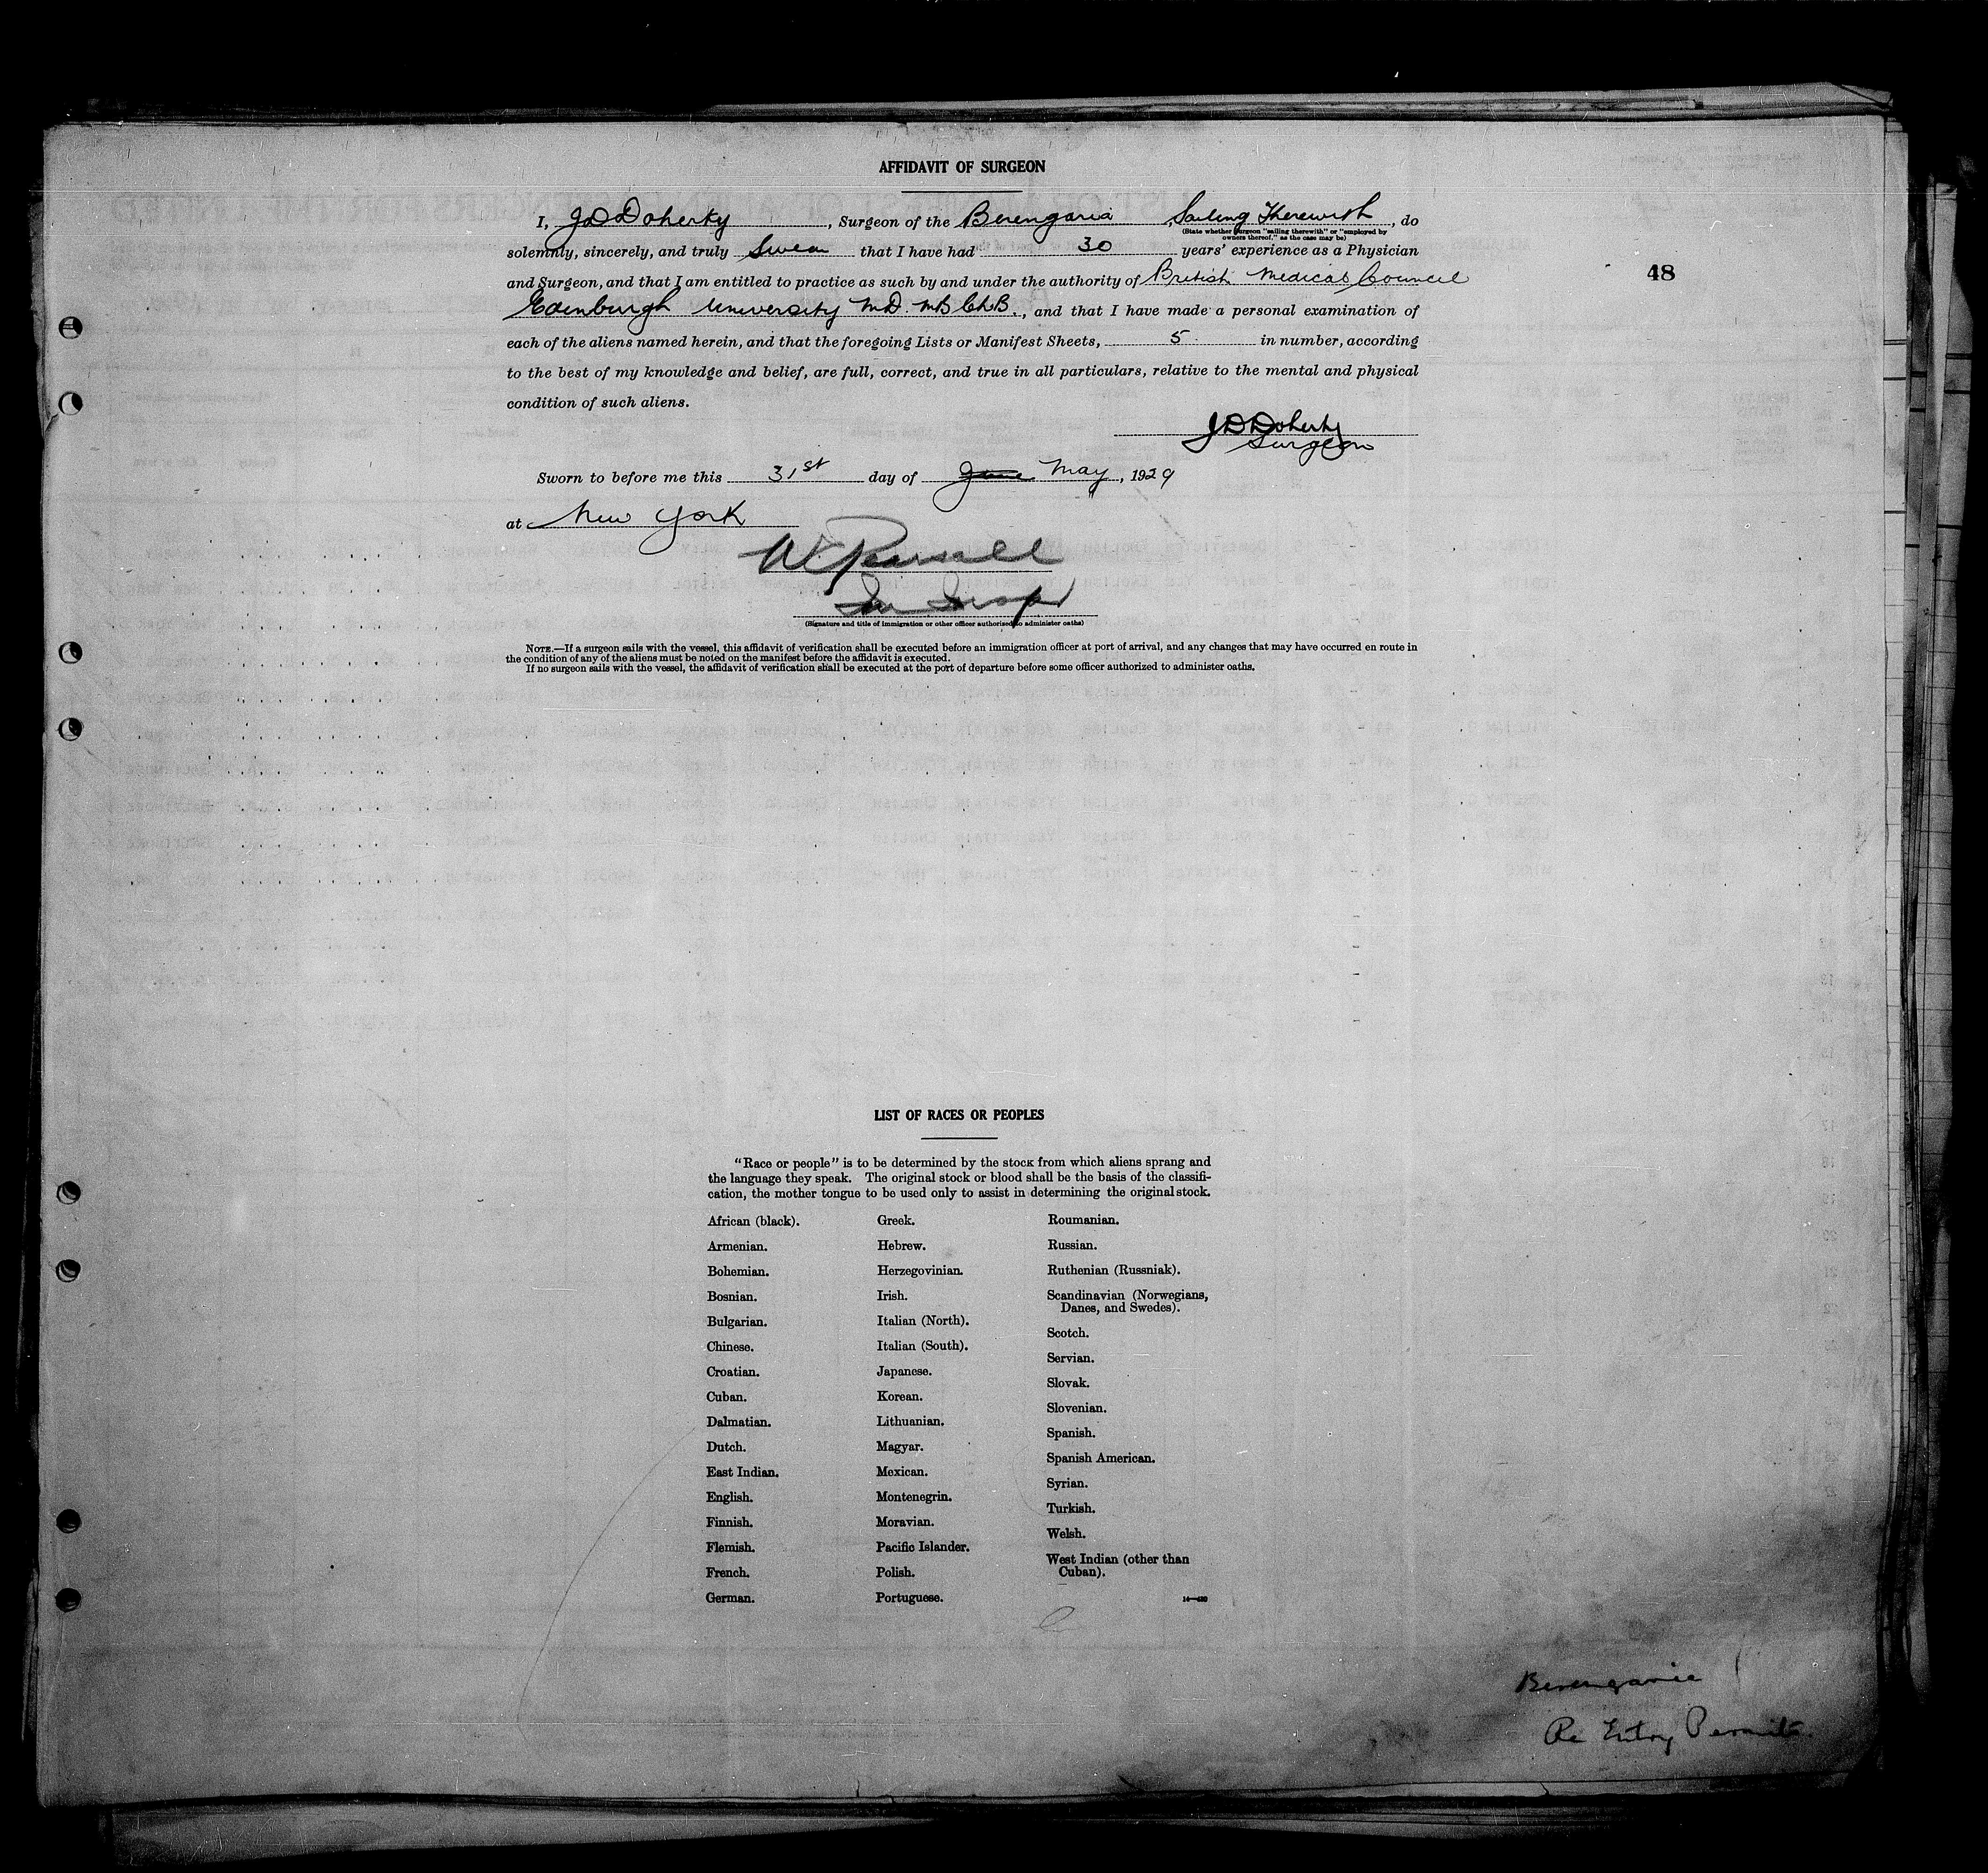 AFFIDAVIT OF SURGEON
I, J D Doherty, Surgeon of the Berengaria, Sailing Therewith, do
(State whether surgeon "sailing therewith" or "employed by
owners thereof," as the case may be)
solemnly, sincerely, and truly Swear that I have had 30 years' experience as a Physician
48
and Surgeon, and that I am entitled to practice as such by and under the authority of British Medical Council
Edinburgh University M.D. M B Ch.B., and that I have made a personal examination of
each of the aliens named herein, and that the foregoing Lists or Manifest Sheets, 5 in number, according
to the best of my knowledge and belief, are full, correct, and true in all particulars, relative to the mental and physical
condition of such aliens.
J D Doherty
Surgeon
Sworn to before me this 31st day of June May, 1929
at New York
W Pearsall
Im Insp
(Signature and title of immigration or other officer authorized to administer oaths)
NOTE.—If a surgeon sails with the vessel, this affidavit of verification shall be executed before an immigration officer at port of arrival, and any changes that may have occurred en route in
the condition of any of the aliens must be noted on the manifest before the affidavit is executed.
If no surgeon sails with the vessel, the affidavit of verification shall be executed at the port of departure before some officer authorized to administer oaths.
LIST OF RACES OR PEOPLES
"Race or people" is to be determined by the stock from which aliens sprang and
the language they speak. The original stock or blood shall be the basis of the classifi-
cation, the mother tongue to be used only to assist in determining the original stock.
African (black).
Armenian.
Bohemian.
Bosnian.
Bulgarian.
Chinese.
Croatian.
Cuban.
Dalmatian.
Dutch.
East Indian.
English.
Finnish.
Flemish.
French.
German.
Greek.
Hebrew.
Herzegovinian.
Irish.
Italian (North).
Italian (South).
Japanese.
Korean.
Lithuanian.
Magyar.
Mexican.
Montenegrin.
Moravian.
Pacific Islander.
Polish.
Portuguese.
Roumanian.
Russian.
Ruthenian (Russniak).
Scandinavian (Norwegians,
Danes, and Swedes).
Scotch.
Servian.
Slovak.
Slovenian.
Spanish.
Spanish American.
Syrian.
Turkish.
Welsh.
West Indian (other than
Cuban).
Berengaria
Re Entry Permits